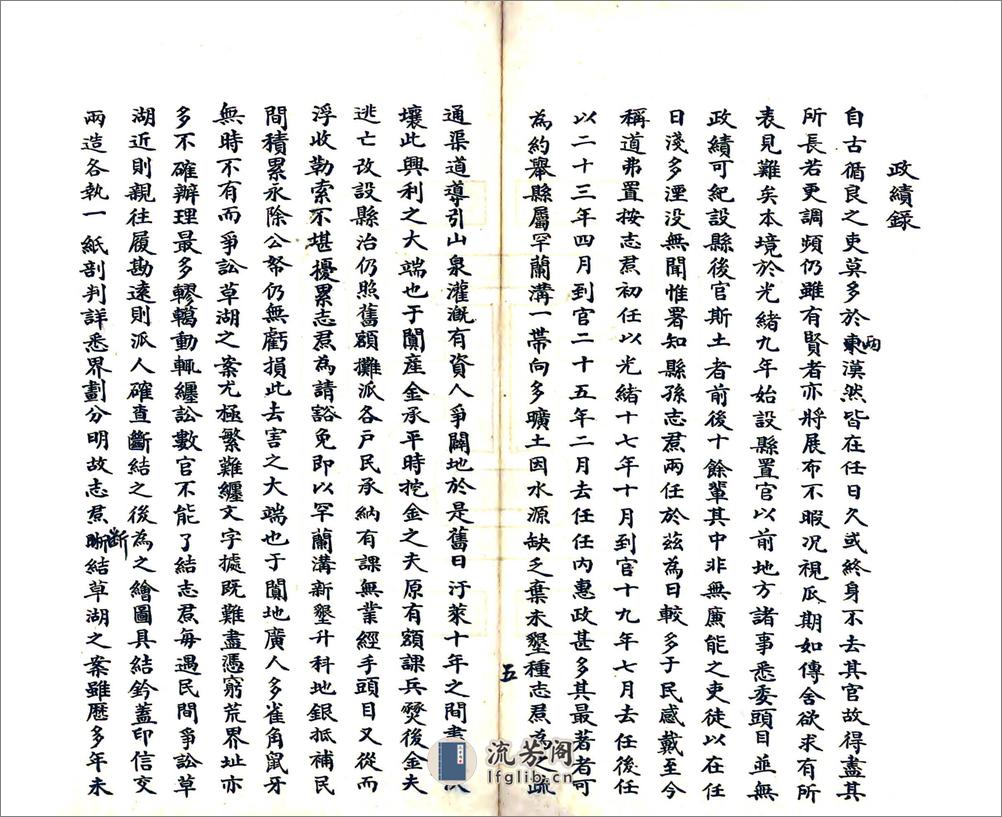 政績錄
自古循良之吏莫多於東兩漢然皆在任日久或終身不去其官故得盡其
所長若更調頻仍雖有賢者亦將展布不暇况視瓜期如傳舍欲求有所
表見難矣本境於光緒九年始設縣置官以前地方諸事悉委頭目並無
政績可紀設縣後官斯土者前後十餘輩其中非無廉能之吏徒以在任
日淺多湮没無聞惟署知縣孫志焄兩任於兹為日較多于民感戴至今
稱道弗置按志焄初任以光緒十七年十月到官十九年七月去任後任
以二十三年四月到官二十五年二月去任任内惠政甚多其最著者可
為約舉縣屬罕蘭溝一帶向多曠土因水源缺乏棄未墾種志焄為之疏
五
通渠道導引山泉灌溉有資人爭闢地於是舊日汙萊十年之間盡
壤此興利之大端也于闐産金承平時挖金之夫原有額課兵燹後金夫
逃亡改設縣治仍照舊額攤派各户民承納有課無業經手頭目又從而
浮收勒索不堪擾累志焄為請豁免即以罕蘭溝新墾升科地銀抵補民
間積累永除公帑仍無虧損此去害之大端也于闐地廣人多雀角鼠牙
無時不有而爭訟草湖之案尤極繁難纏文字據既難盡憑窮荒界址亦
多不確辦理最多轇轕動輒纏訟數官不能了結志焄每遇民間爭訟草
湖近則親往履勘遠則派人確查斷結之後為之繪圖具結鈐蓋印信交
兩造各執一紙剖判詳悉界劃分明故志焄斷結草湖之案雖歷多年未
流芳阁
lfglib.cn